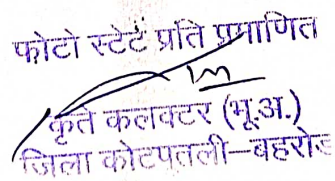 फोटो स्टेटें प्रति प्रमाणित
कृते कलक्टर (भू.अ.)
जिला कोटपतली–बहरोड